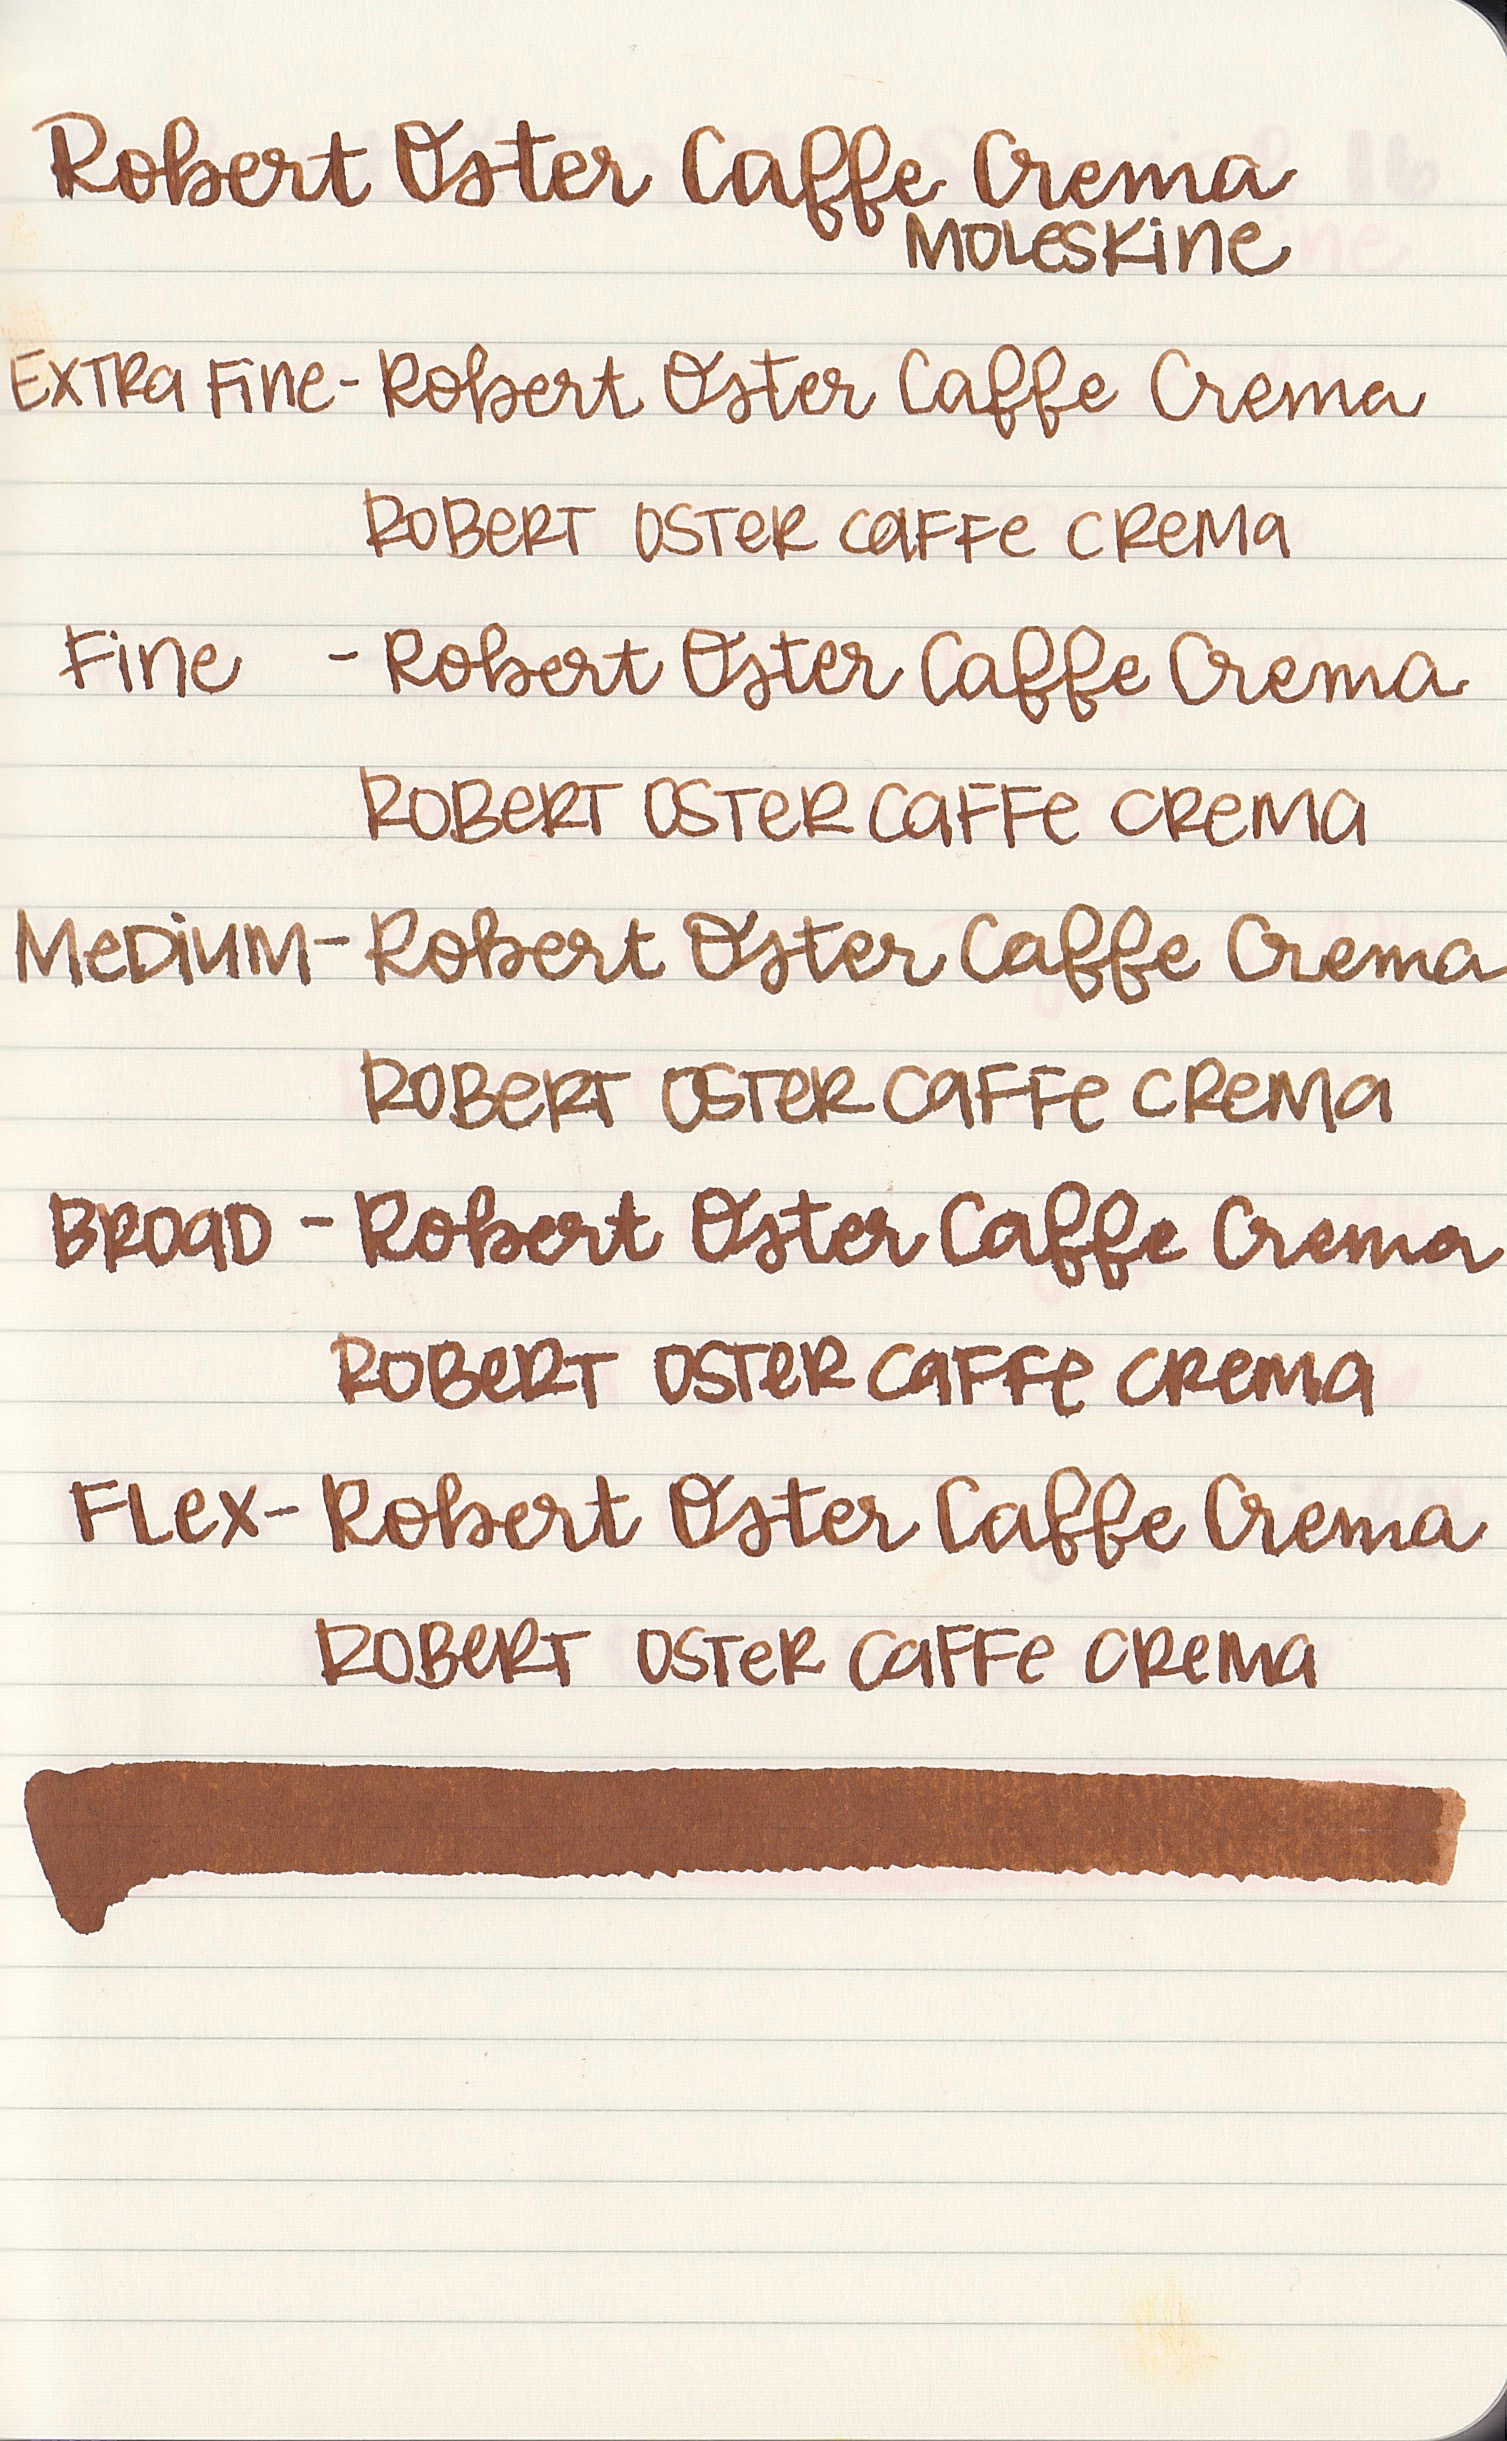 Robert Oster Caffe Crema
MOLESKiNe
EXTRa FiNe - Robert Oster Caffe Crema
ROBeRT OSTeR CaFFe CReMa
FiNe - Robert Oster Caffe Crema
ROBeRT OSTeR CaFFe CReMa
MeDiUM - Robert Oster Caffe Crema
ROBeRT OSTeR CaFFe CReMa
BROaD - Robert Oster Caffe Crema
ROBeRT OSTeR CaFFe CReMa
FLeX - Robert Oster Caffe Crema
ROBeRT OSTeR CaFFe CReMa